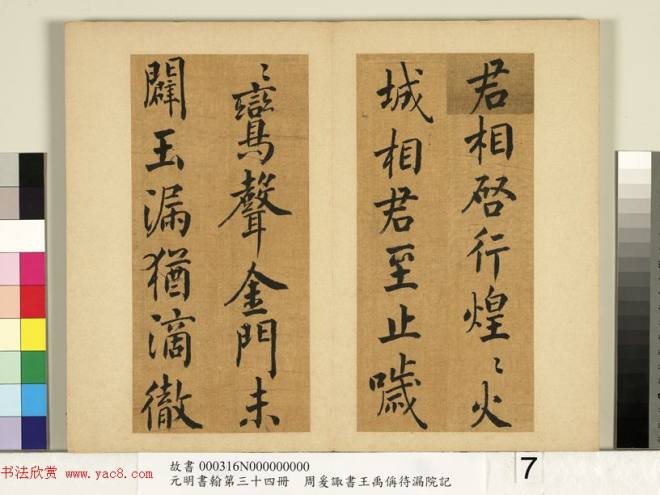 君相啓行煌〻火
城相君至止噦
〻鸞聲金門未
闢玉漏猶滴徹
故書 000316N000000000
元明書翰第三十四冊 周爰諏書王禹偁待漏院記
7
书法欣赏 www.yac8.com